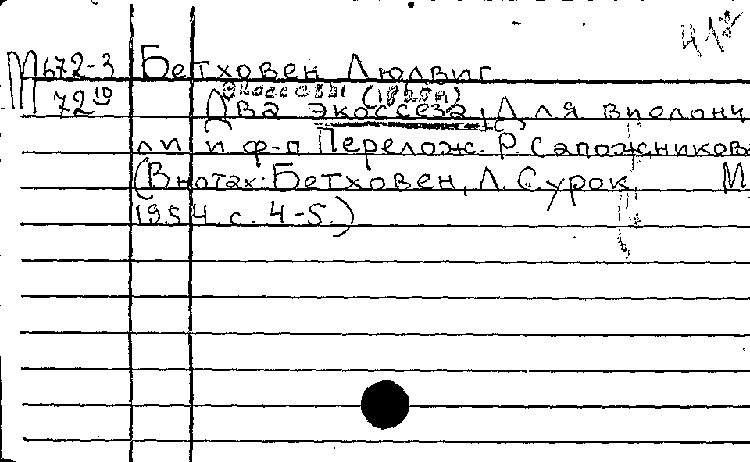 М 672-3 Бетховен Людвиг
72 19 Экоссезы
Два экоссеза, Для виолончи
ли и ф-п Перелож. Р. Сапожников
(В нотах: Бетховен, Л. Сурок М.
1954. с. 4-5.)